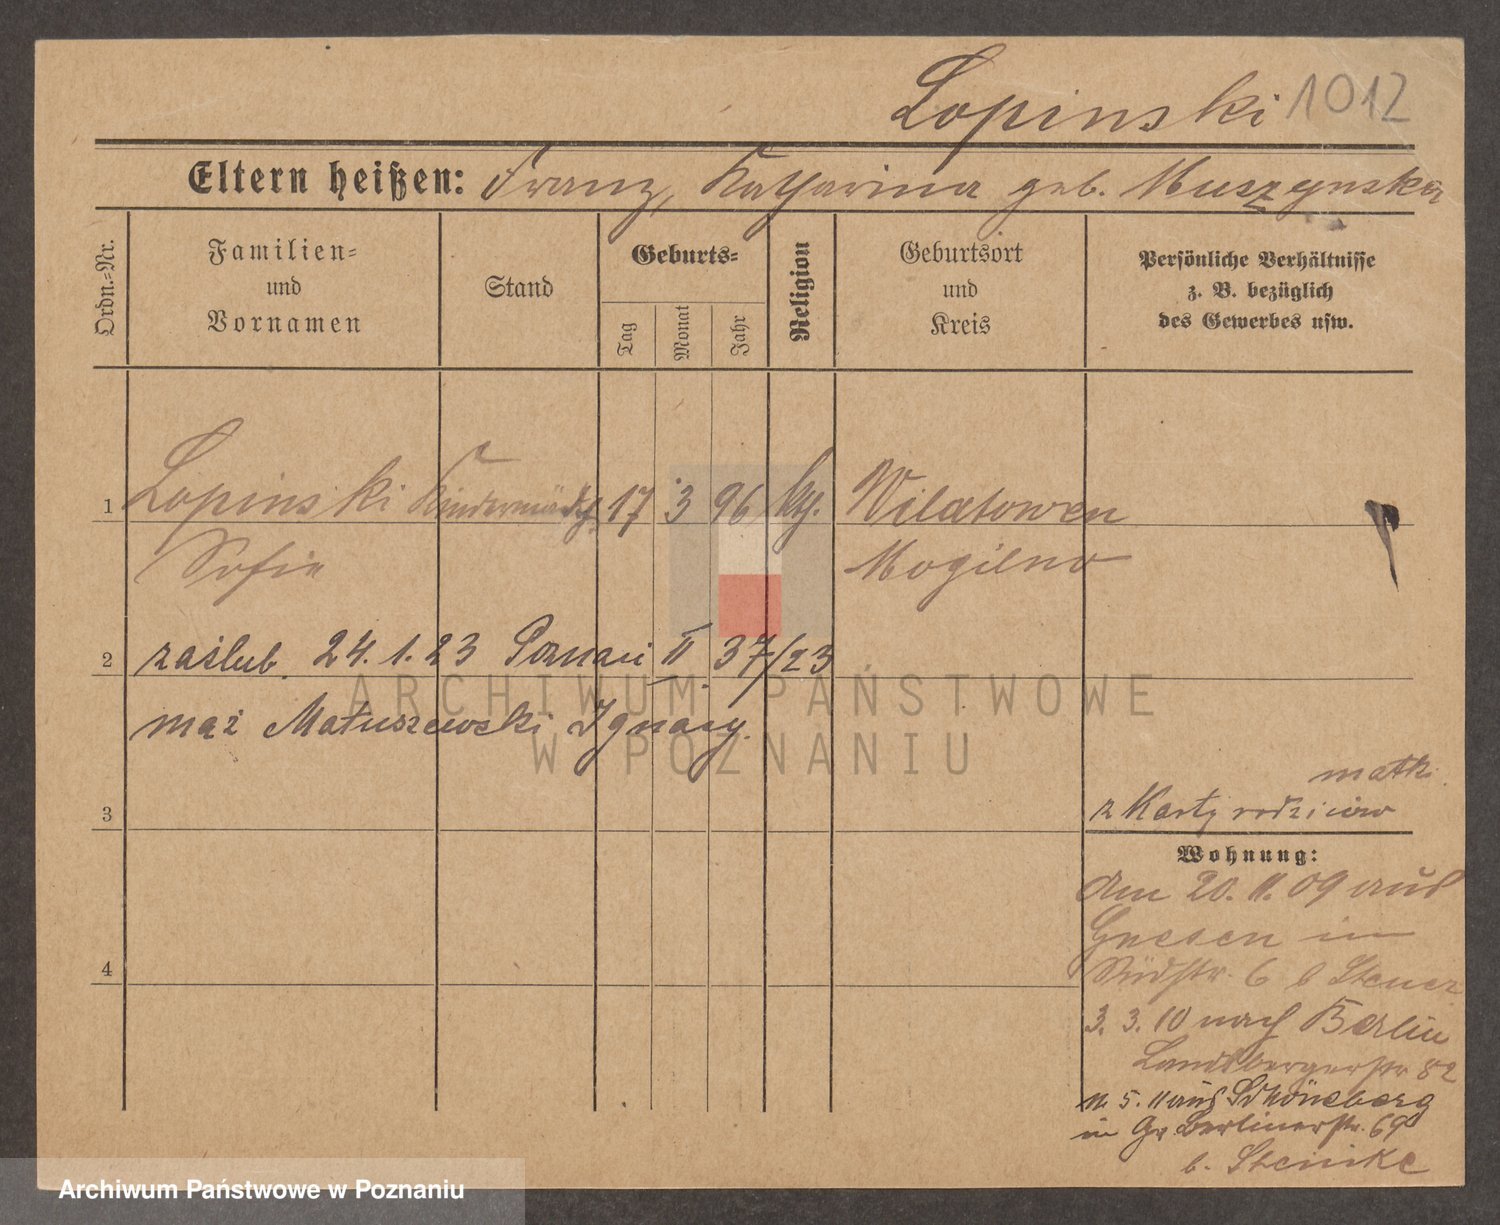 Lopinski 1012
Eltern heißen: Franz, Katharina geb. Muszynska
Ordn.-Nr.
Familien-
und
Vornamen
Stand
Geburts-
Tag
Monat
Jahr
Religion
Geburtsort
und
Kreis
Persönliche Verhältnisse
z. B. bezüglich
des Gewerbes usw.
1 Lopinski Kindermädch. 17 3 96 kth. Wilatowen
Sofie Mogilno
2 zaślub. 24.1.23 Poznań II 37/23
mąż Matuszewski Ignacy.
matki
z Karty rodziców
3
Wohnung:
Am 20. 11. 09 aus
Gnesen in
Südstr. 6 b
4
3. 3. 10 nach Berlin
Landsbergerstr 82
5. 11 aus Schöneberg
in Gr. Berlinerstr. 69
b.
ARCHIWUM PAŃSTWOWE
W POZNANIU
Archiwum Państwowe w Poznaniu